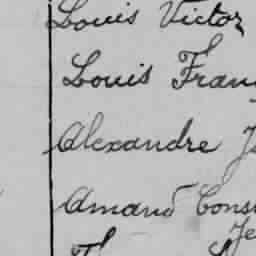 Louis Victor
Louis Fran
Alexandre
Amand Cons